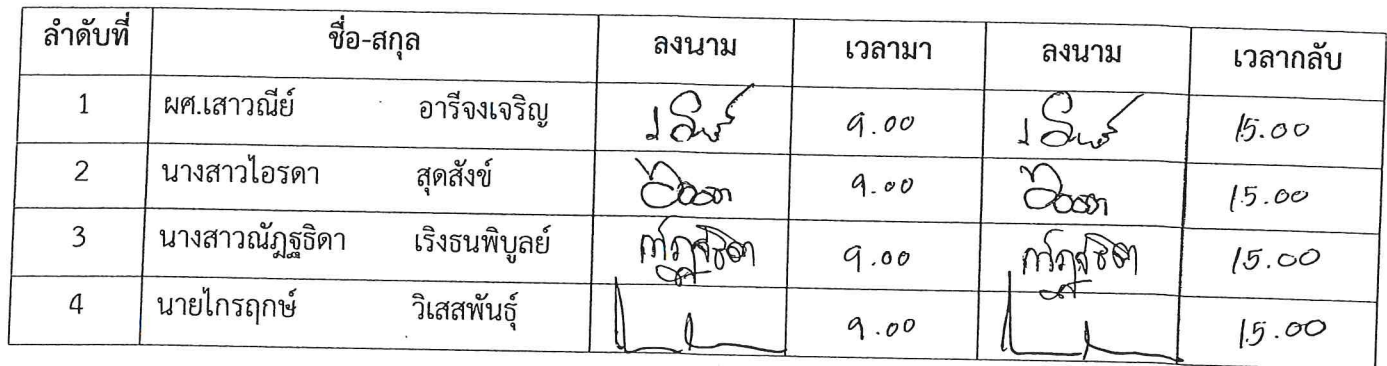 ลำดับที่ ชื่อ-สกุล ลงนาม เวลามา ลงนาม เวลากลับ
1 ผศ.เสาวณีย์ อารีจงเจริญ 9.00 15.00
2 นางสาวไอรดา สุดสังข์ 9.00 15.00
3 นางสาวณัฎฐธิดา เริงธนพิบูลย์ ณัฎฐธิดา 9.00 ณัฎฐธิดา 15.00
4 นายไกรฤกษ์ วิเสสพันธุ์ 9.00 15.00